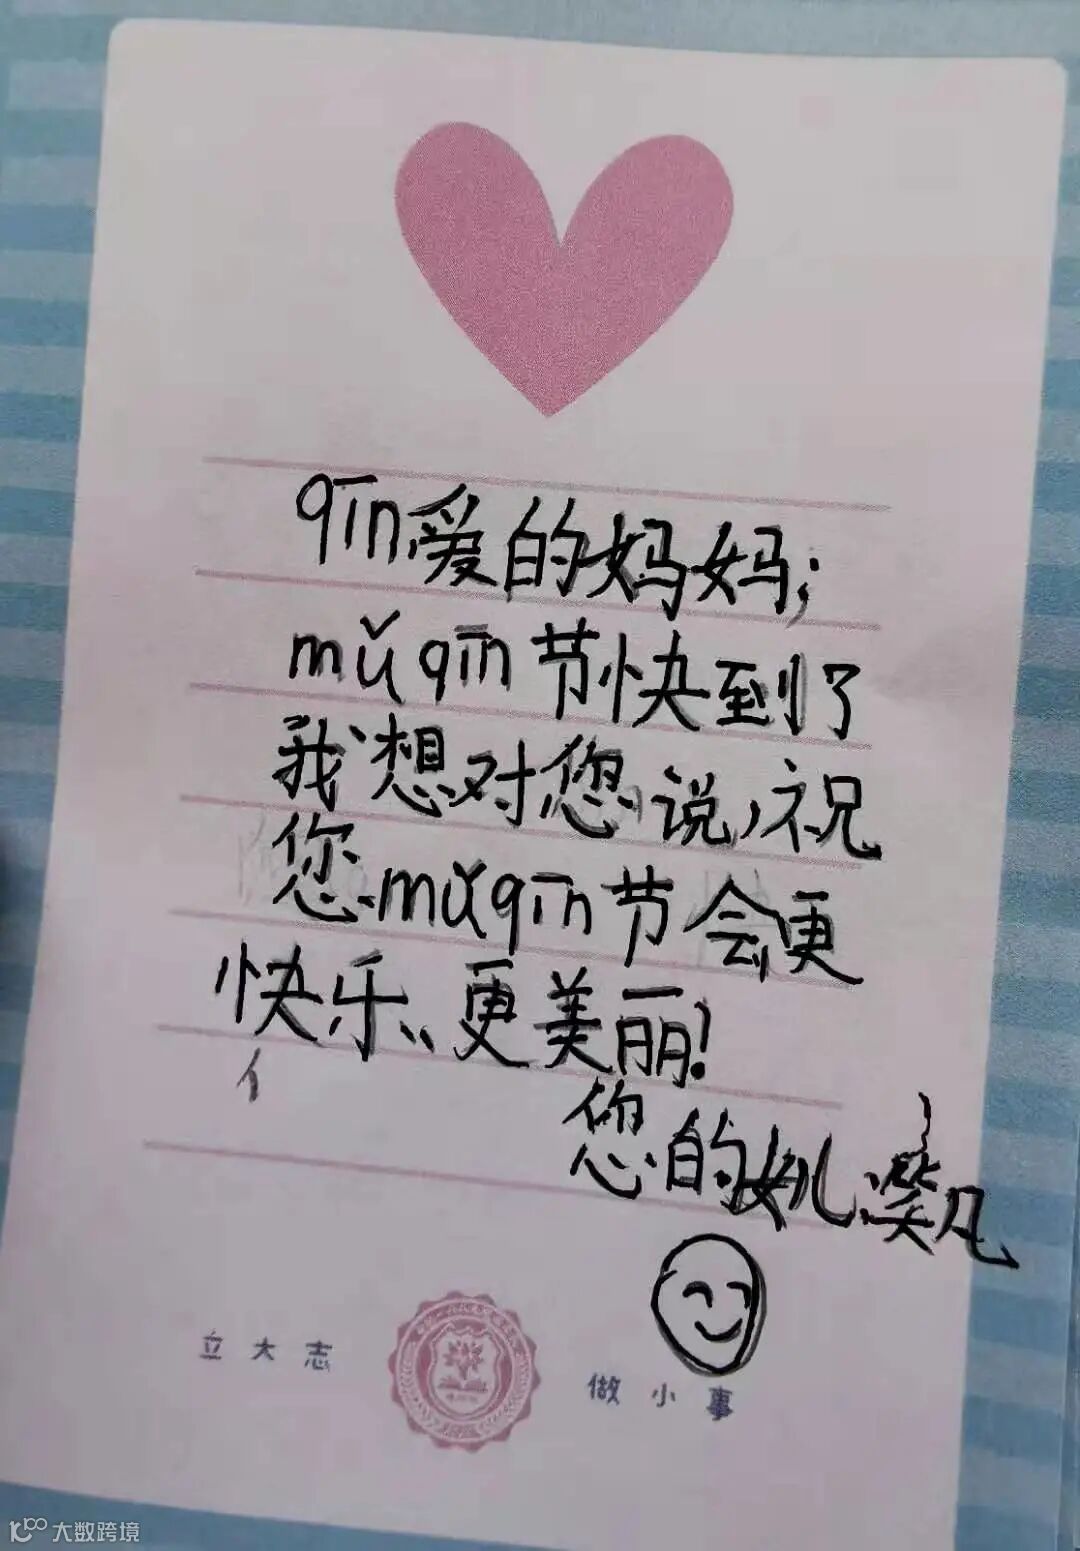 qīn爱的妈妈;
mǔ qīn 节快到了
我想对您说,祝
您mǔqīn节会更
快乐、更美丽!
您的
凡
立大志
做小事
大数跨境